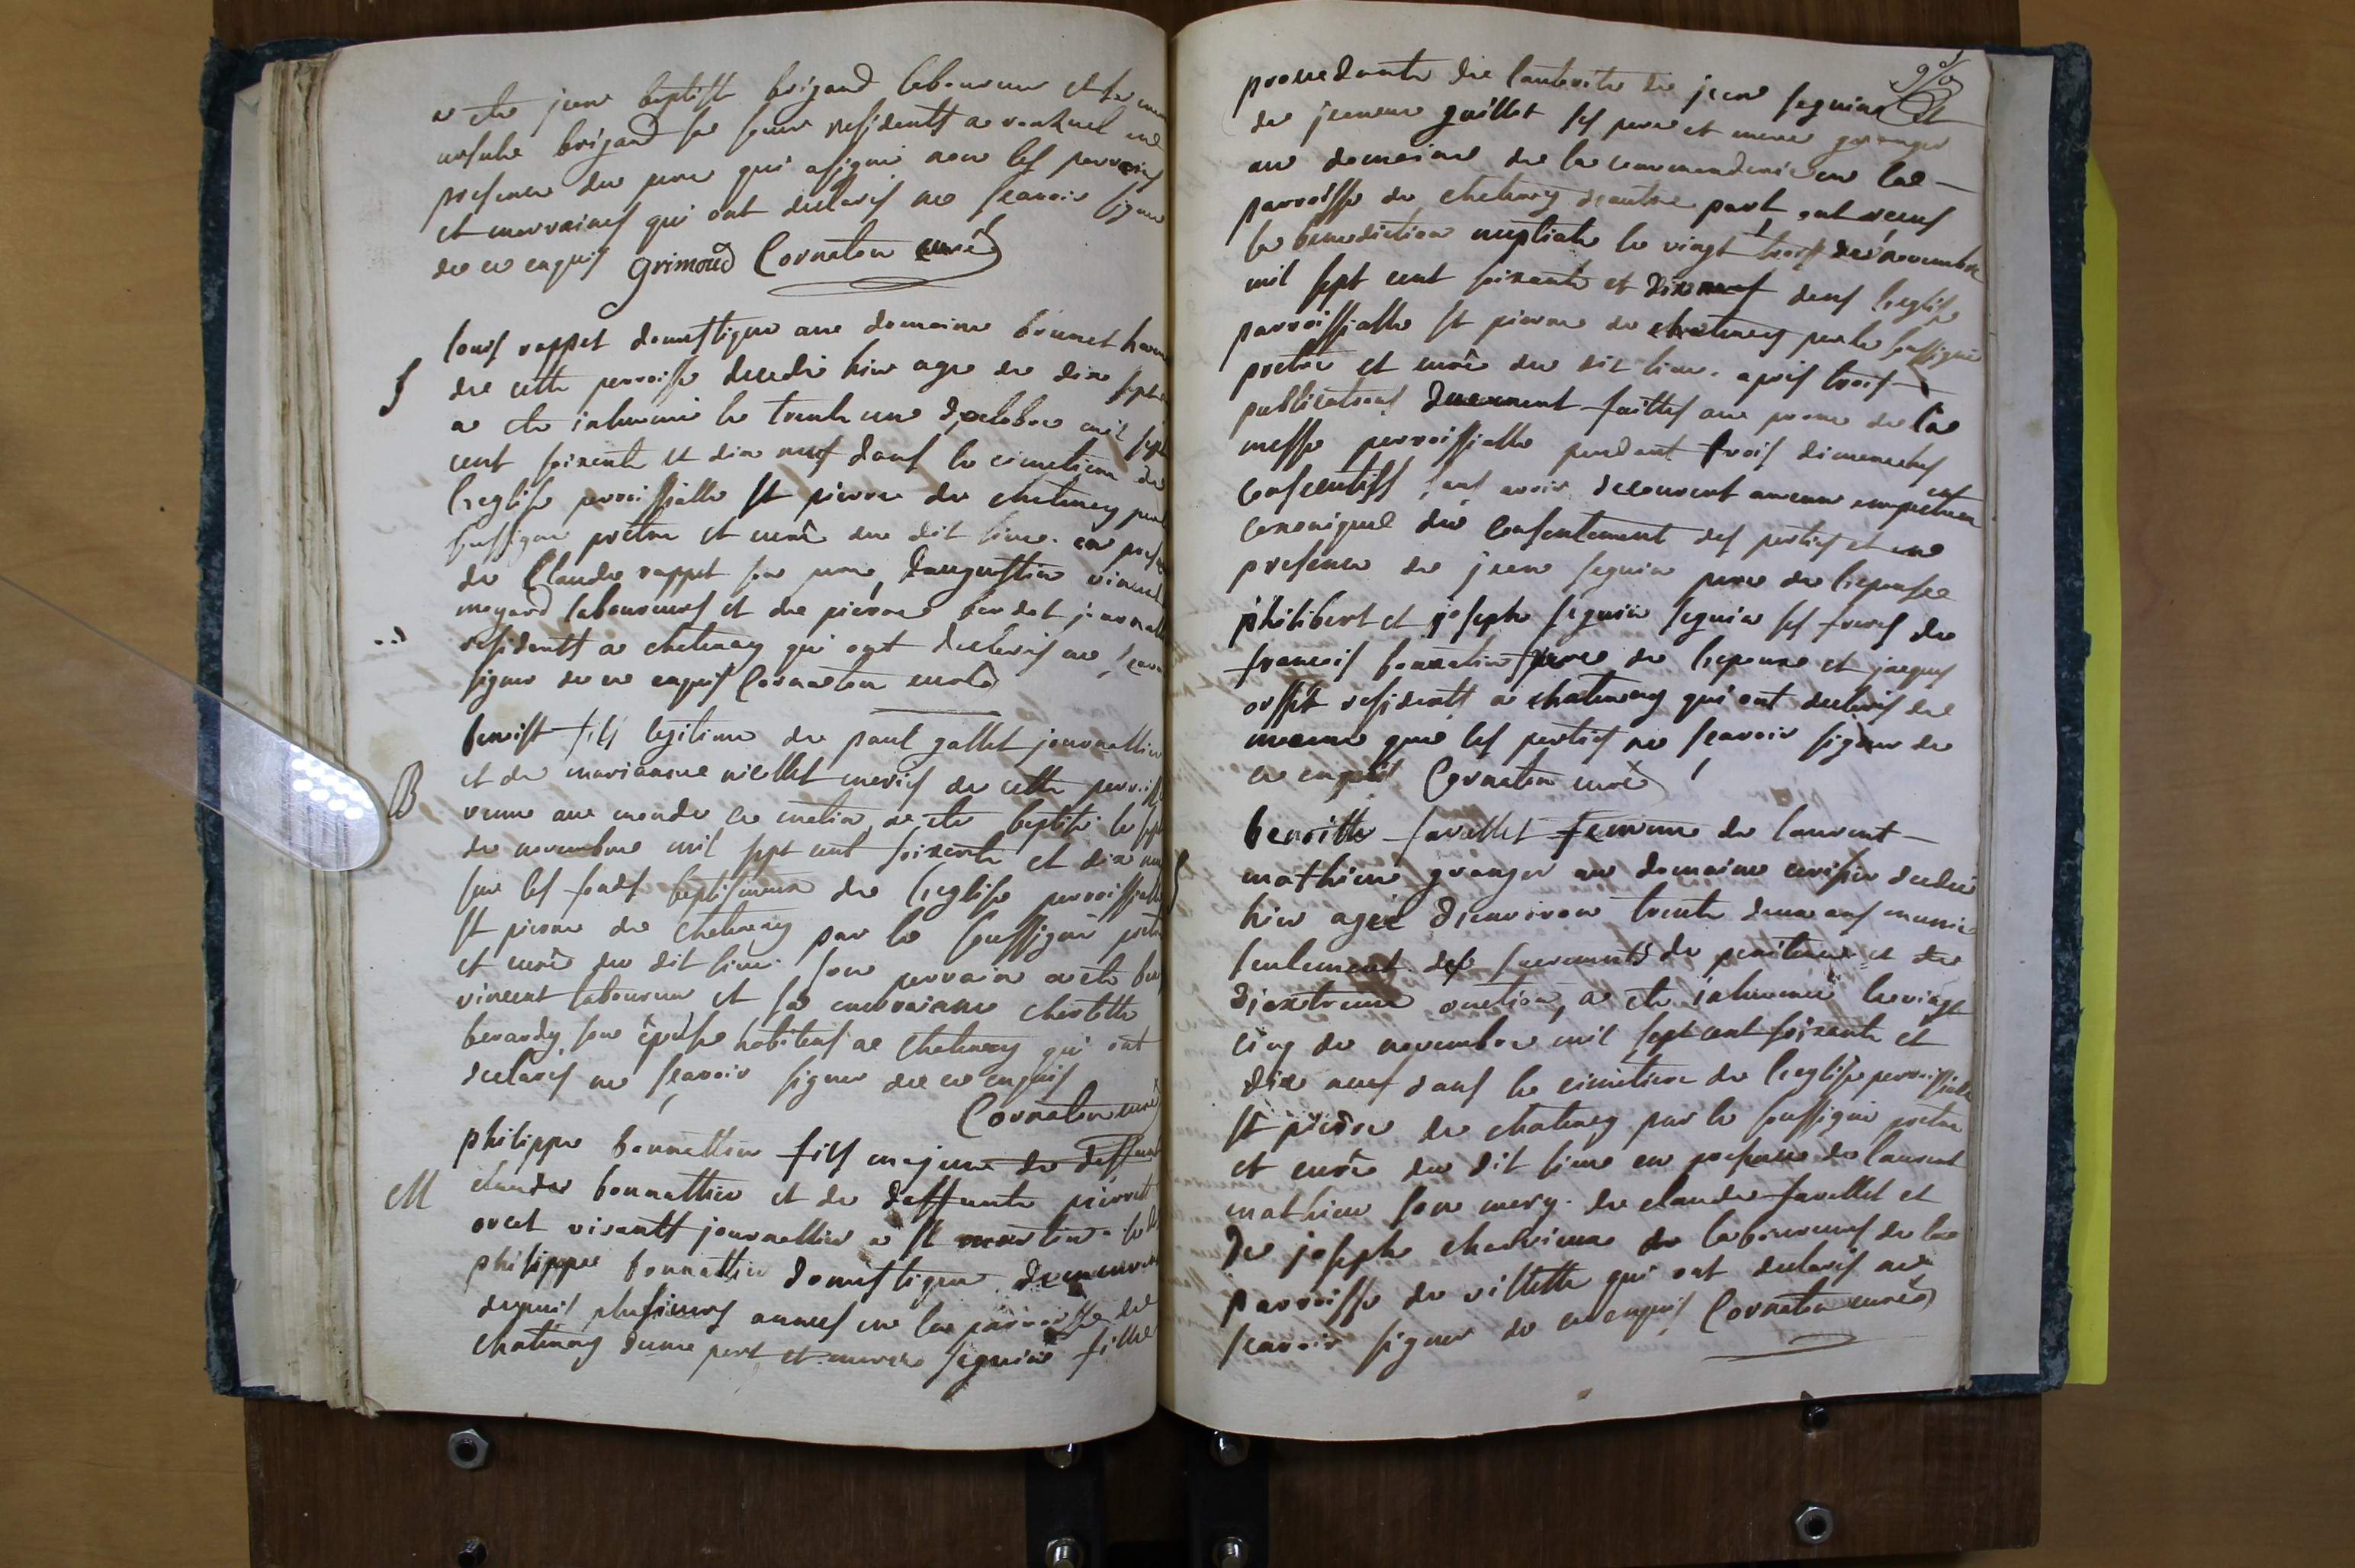 a ete jean baptiste brigand laboureur et sa
ursule brigand sa soeur residents a en
presence du pere qui a signé non les parrains
et marraines qui ont declarés ne scavoir signer
de ce enquis Grimoud Cornaton curé
louis rappet domestique au domaine brunet
S
de cette parroisse decedé hier agé de dix sept
a ete inhumé le trente un d'octobre mil sept
cent soixante et dix neuf dans le cimetiere de
l'eglise parroissialle st pierre de chatenay par le
soussigné pretre et curé du dit lieu. en
de Claude rappet son pere, d'augustin vincent
mayard laboureurs et de pierre journallier
residents a chatenay qui ont declarés ne scavoir
signer de ce enquis Cornaton curé
benoist fils legitime de paul gallet journallier
B
et de marianne niollet mariés de cette parroisse
venu au monde ce matin a ete baptisé le sept
de novembre mil sept cent soixante et dix neuf
sur les fonds baptismaux de l'eglise parroissialle
st pierre de chatenay par le soussigné pretre
et curé du dit lieu. son parrain a ete
vincent laboureur et sa marraine
son épouse habitans a chatenay qui ont
declarés ne scavoir signer de ce enquis
Cornaton curé
philippe bonnattier fils majeur de deffunt
M
claude bonnattier et de deffunte pierrette
vivants journallier a st martin. le dit
philippe bonnattier domestique demeurant
depuis plusieurs années en la parroisse de
chatenay d'une part et seguin fille
procedante de l'autorité de jean seguin et
de jeanne guillet ses pere et mere granger
au domaine de la commanderie en la
parroisse de chatenay d'autre part, ont recus
la benediction nuptiale le vingt trois de novembre
mil sept cent soixante et dix neuf dans l'eglise
parroissialle st pierre de chatenay par le soussigné
pretre et curé du dit lieu. apres trois
publications duement faittes au prone de la
messe parroissialle pendant trois dimanches
consecutifs sans avoir decouvert aucun empechement
canonique du consentement des parties et en
presence de jean seguin pere de l'epouse
philibert et joseph seguin seguin ses freres de
francois bonnattier frere de l'epoux et jaques
residents a chatenay qui ont declarés de
meme que les parties ne scavoir signer de
ce enquis Cornaton curé
benoitte favellet femme de laurent
S
mathieu granger au domaine cerisier decedée
hier agée d'environ trente deux ans munie
seulement des sacrements de penitence et de
d'extreme onction, a ete inhumée le vingt
cinq de novembre mil sept cent soixante et
dix neuf dans le cimetiere de l'eglise parroissialle
st pierre de chatenay par le soussigné pretre
et curé du dit lieu en presence de laurent
mathieu son mary. de claude favellet et
de joseph laboureurs de la
parroisse de villette qui ont declarés ne
scavoir signer de ce enquis Cornaton curé